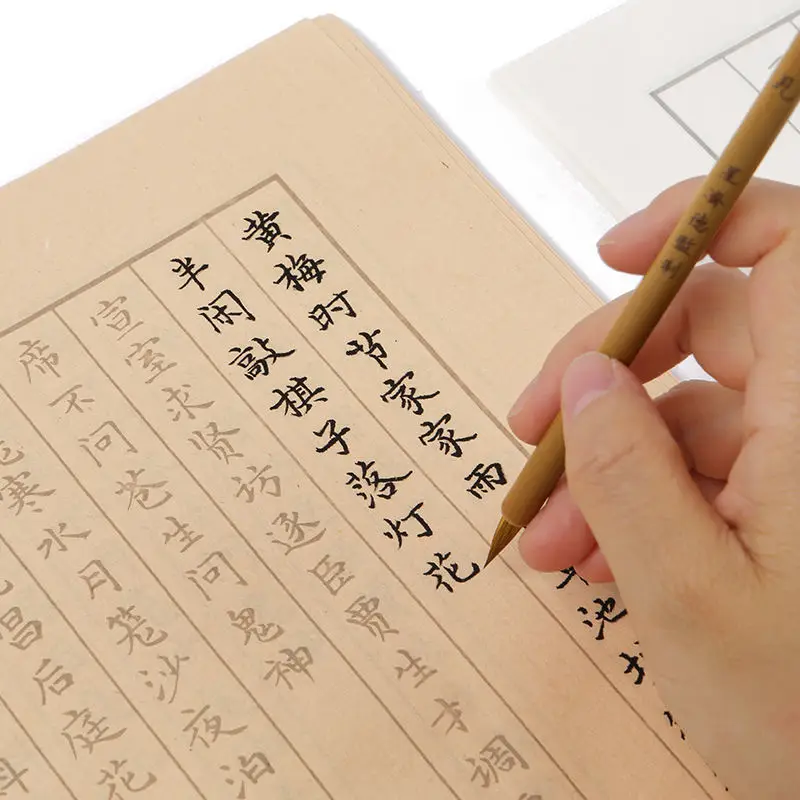 黄梅时节家家雨池
半闲敲棋子落灯花
宣室求贤坊逐臣贾生才调
席不问苍生问鬼神
寒水月笼沙夜泊
后庭花